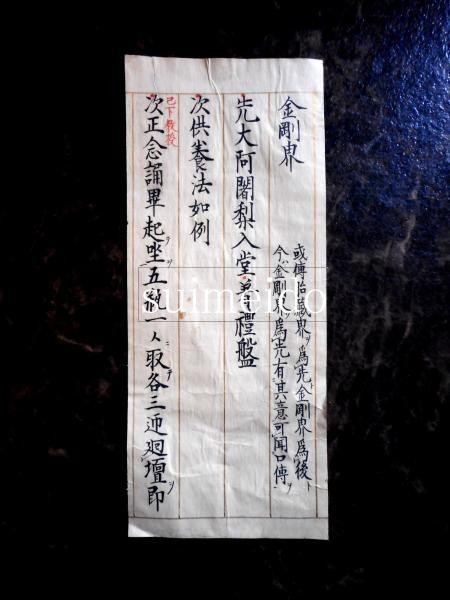 金剛界
或傳胎藏界ヲ為先ト金剛界為後ト
今ハ金剛界ヲ為先有其意可聞口傳ヲ
先大阿闍梨入堂著禮盤
次供養法如例
已下教授
次正念誦畢起坐ヲ五瓶一々ニ取テ各三迊廻壇ヲ即
suimeido